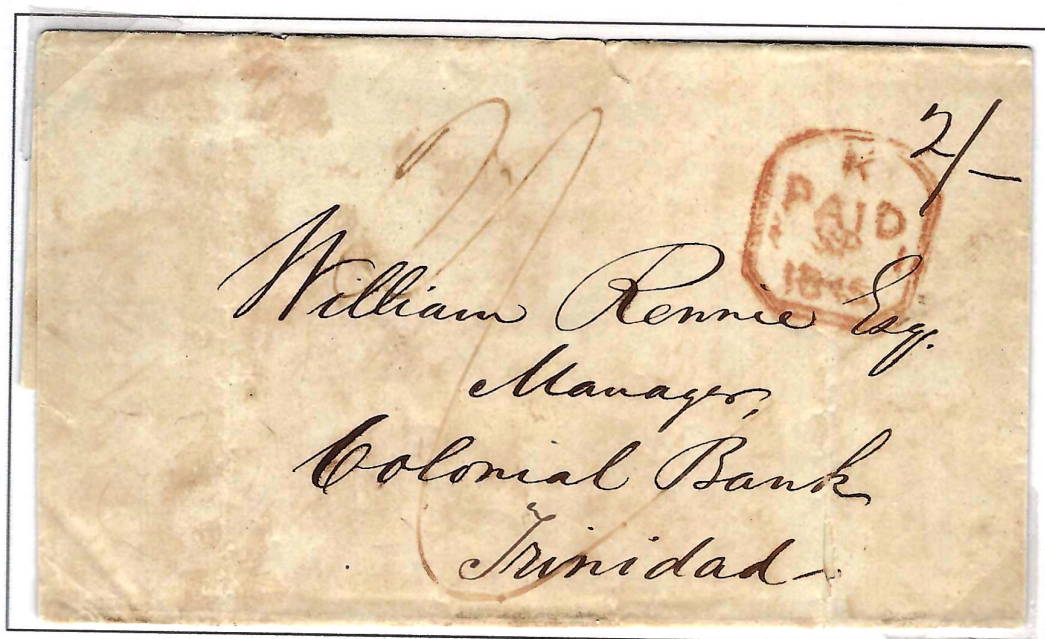 2/-
K
PAID
SP
William Rennie Esq.
Manager,
Colonial Bank
Trinidad